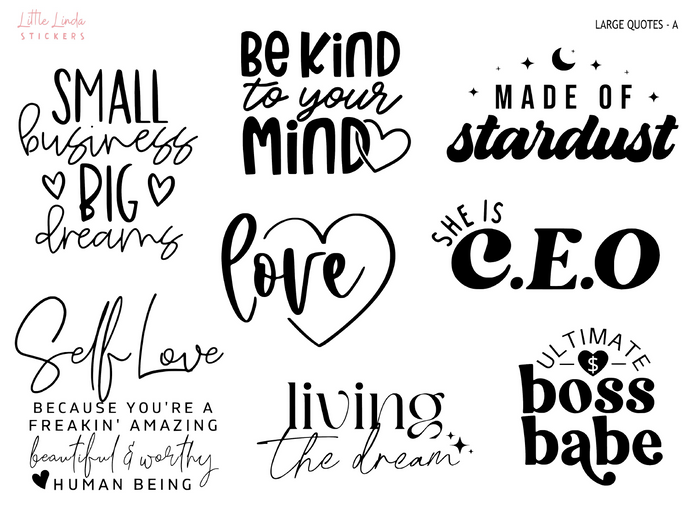 Little Linda
STICKERS
LARGE QUOTES - A
SMALL
business
BIG
dreams
BE KiND
to your
MiND
MADE OF
stardust
love
SHE IS
C.E.O
Self Love
BECAUSE YOU'RE A
FREAKIN' AMAZING
beautiful & worthy
HUMAN BEING
living
the dream
ULTIMATE
$
boss
babe